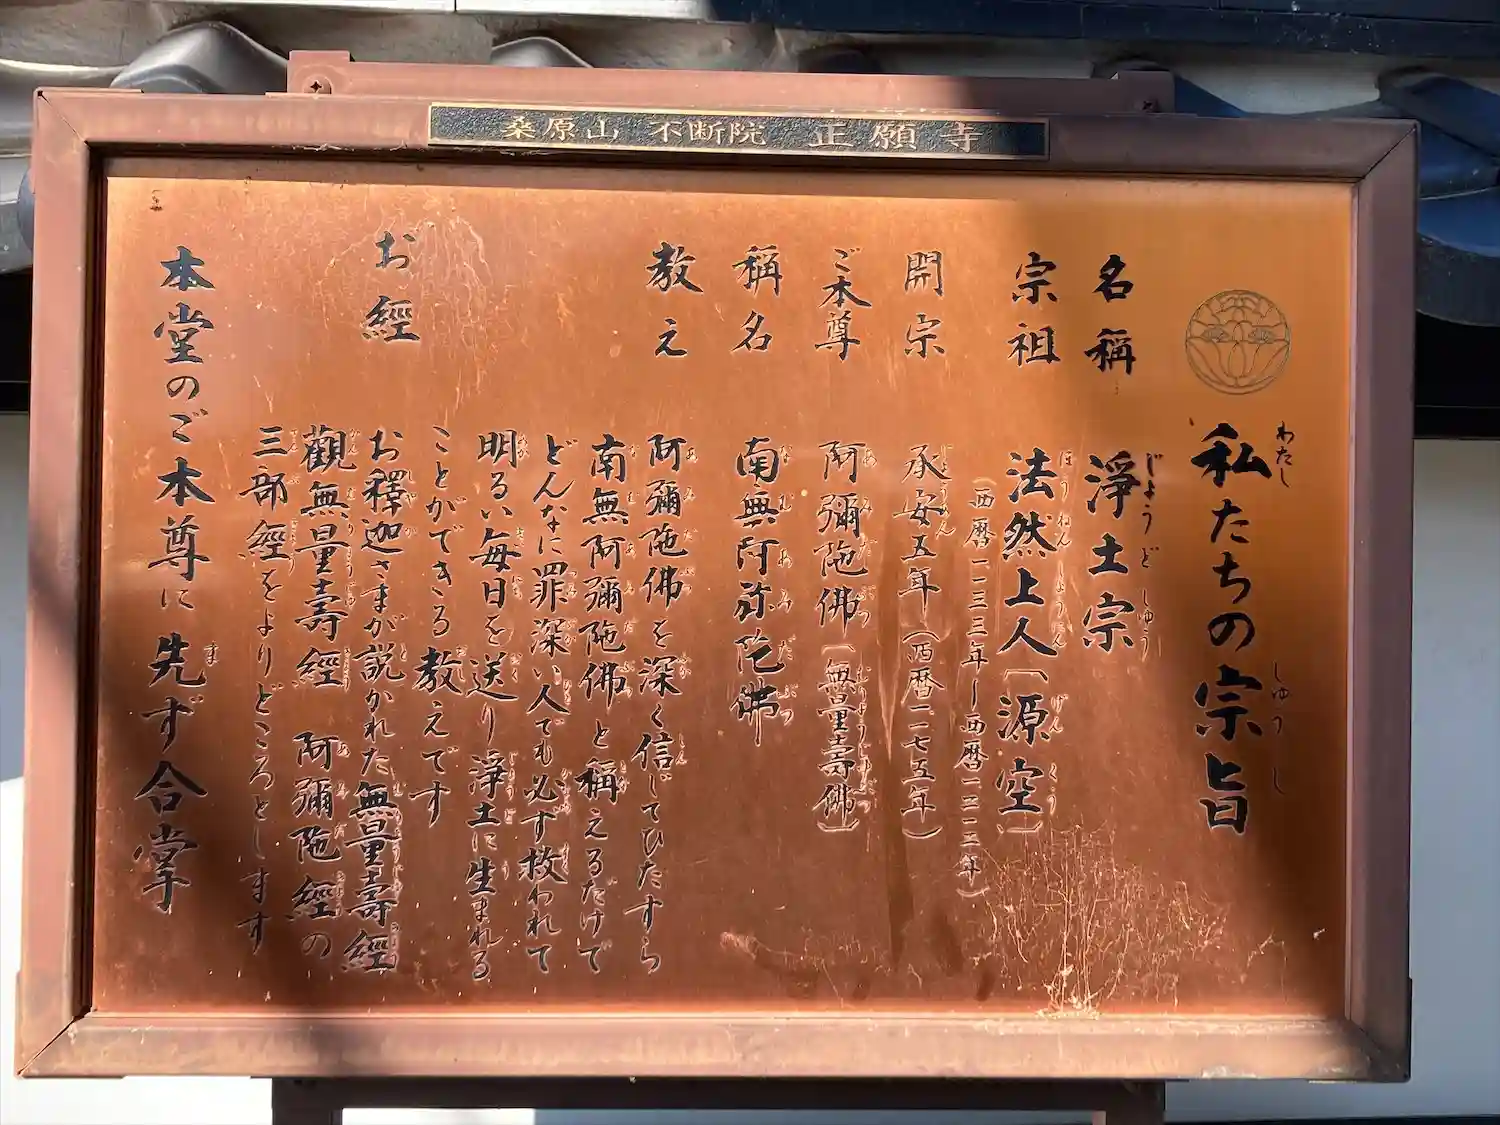 桑原山 不断院 正願寺
私たちの宗旨
名稱 淨土宗
宗祖 法然上人〔源空〕
（西暦一一三三年～西暦一二一二年）
開宗 承安五年（西暦一一七五年）
ご本尊 阿彌陀佛〔無量壽佛〕
稱名 南無阿弥陀佛
教え 阿彌陀佛を深く信じてひたすら
南無阿彌陀佛と稱えるだけで
どんなに罪深い人でも必ず救われて
明るい毎日を送り淨土に生まれる
ことができる教えです
お經 お釋迦さまが説かれた無量壽經
觀無量壽經 阿彌陀經の
三部經をよりどころとします
本堂のご本尊に先ず合掌